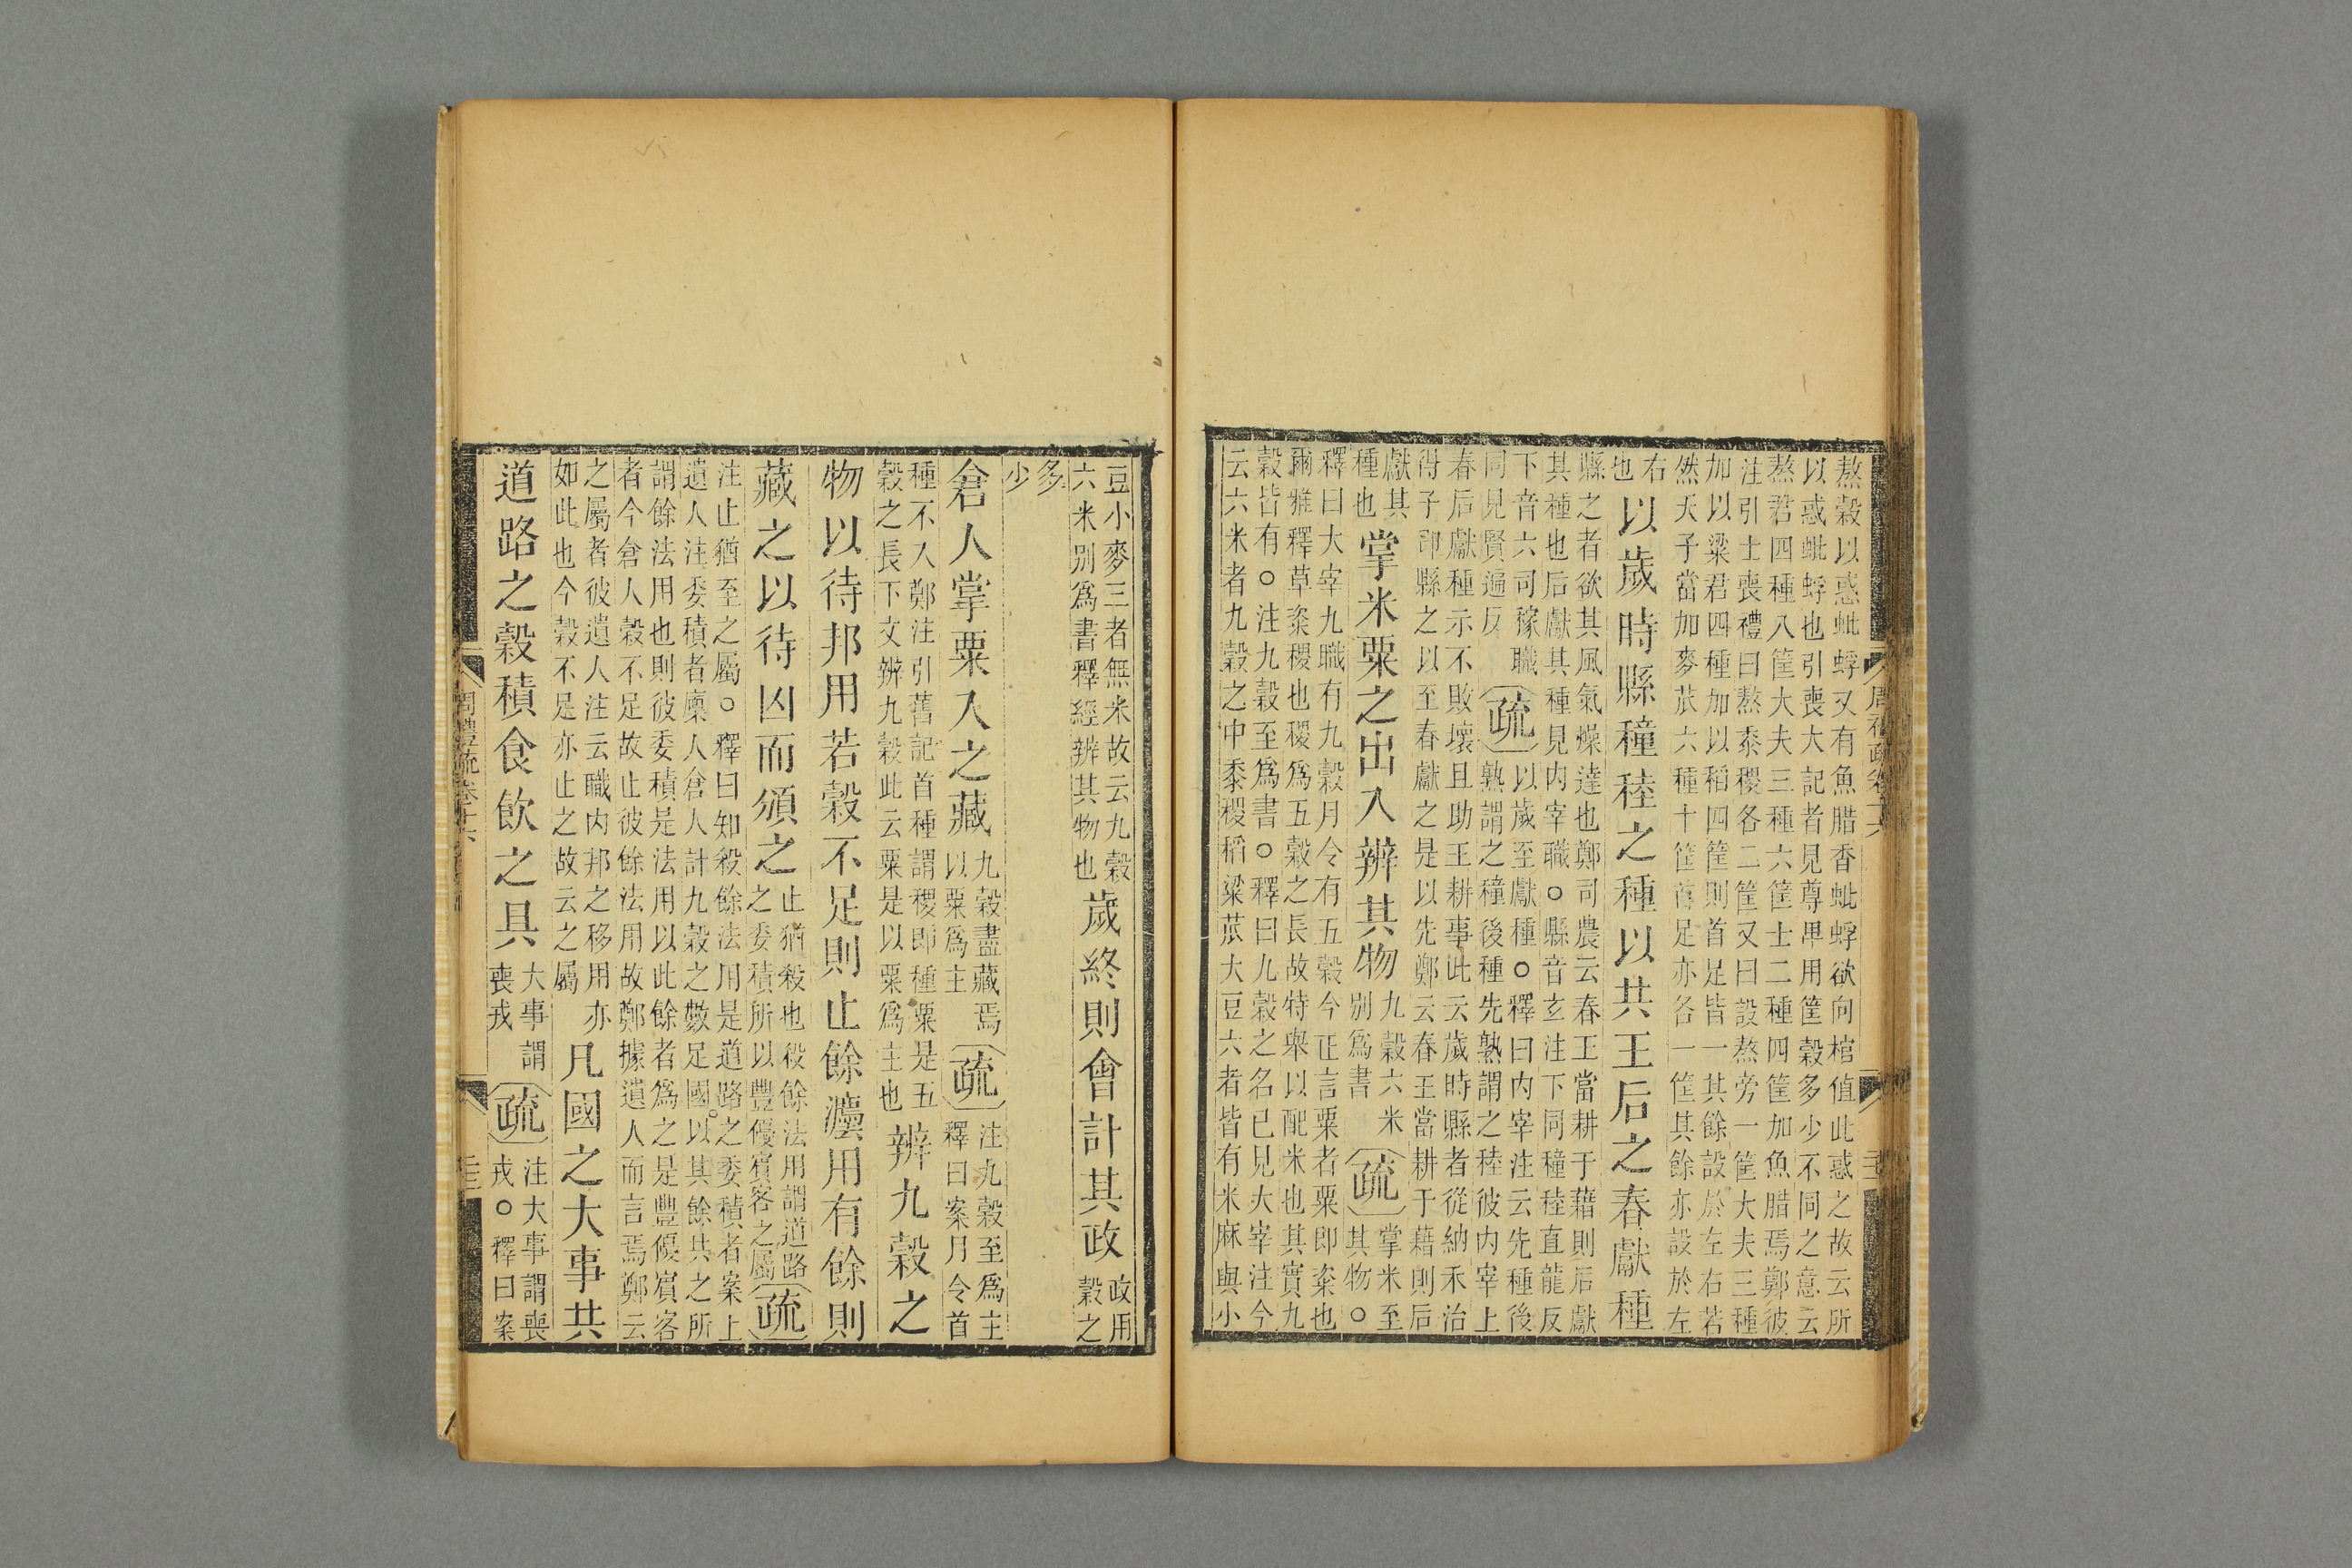 熬穀以惑蚍蜉又有魚腊香蚍蜉欲向棺值此惑之故云所
以惑蚍蜉也引喪大記者見尊卑用筐穀多少不同之意云
熬君四種八筐大夫三種六筐士二種四筐加魚腊焉鄭彼
注引士喪禮曰熬黍稷各二筐又曰設熬旁一筐大夫三種
加以粱君四種加以稻四筐則首足皆一其餘設於左右若
然天子當加麥苽六種十筐首足亦各一筐其餘亦設於左
右
也
以歲時縣穜稑之種以共王后之春獻種
縣之者欲其風氣燥達也鄭司農云春王當耕于藉則后獻
其種也后獻其種見内宰職○縣音玄注下同穜稑直龍反
下音六司稼職
同見賢遍反
疏
以歲至獻種○釋曰内宰注云先種後
熟謂之穜後種先熟謂之稑彼内宰上
春后獻種示不敗壞且助王耕事此云歲時縣者從納禾治
得子即縣之以至春獻之是以先鄭云春王當耕于藉則后
獻其
種也
掌米粟之出入辨其物
九穀六米
别爲書
疏
掌米至
其物○
釋曰大宰九職有九穀月令有五穀今正言粟者粟即粢也
爾雅釋草粢稷也稷爲五穀之長故特舉以配米也其實九
穀皆有○注九穀至爲書○釋曰九穀之名已見大宰注今
云六米者九穀之中黍稷稻粱苽大豆六者皆有米麻與小
豆小麥三者無米故云九穀
六米别爲書釋經辨其物也
歲終則會計其政
政用
穀之
多
少
倉人掌粟入之藏
九穀盡藏焉
以粟爲主
疏
注九穀至爲主
釋曰案月令首
種不入鄭注引舊記首種謂稷即種粟是五
穀之長下文辨九穀此云粟是以粟爲主也
辨九穀之
物以待邦用若穀不足則止餘灋用有餘則
藏之以待凶而頒之
止猶殺也殺餘法用謂道路
之委積所以豐優賓客之屬
疏
注止猶至之屬○釋曰知殺餘法用是道路之委積者案上
遺人注委積者廩人倉人計九穀之數足國以其餘共之所
謂餘法用也則彼委積是法用以此餘者爲之是豐優賓客
者今倉人穀不足故止彼餘法用故鄭據遺人而言焉鄭云
之屬者彼遺人注云職内邦之移用亦
如此也今穀不足亦止之故云之屬
凡國之大事共
道路之穀積食飲之具
大事謂
喪戎
疏
注大事謂喪
戎○釋曰案
周禮疏卷十六